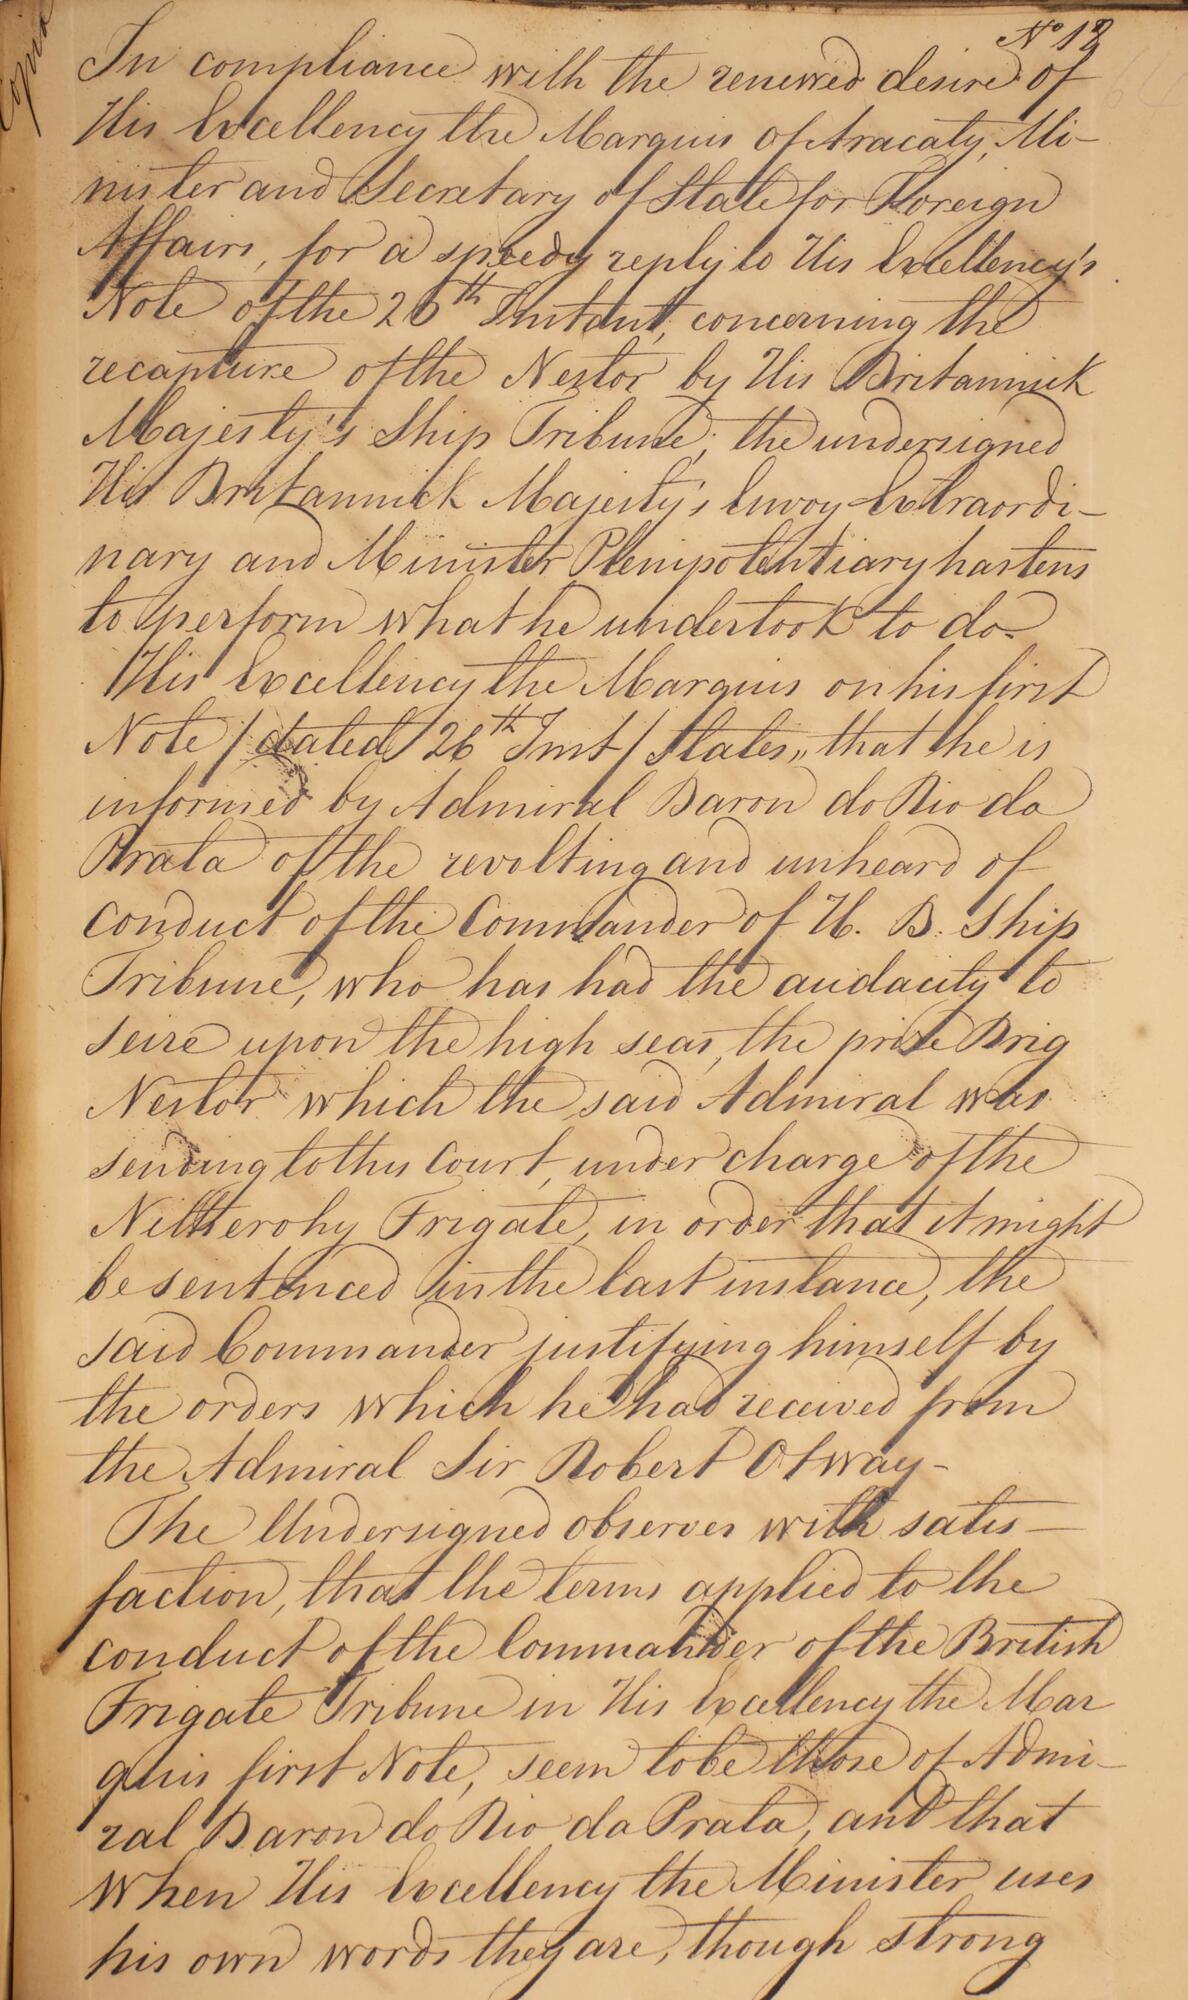 Copia
Nº 12
In compliance with the renewed desire of
His Excellency the Marquis of Aracaty, Mi-
nister and Secretary of State for Foreign
Affairs, for a speedy reply to His Excellency's
Note of the 26th Instant, concerning the
recapture of the Nestor by His Britannick
Majesty's Ship Tribune; the undersigned
His Britannick Majesty's Envoy Extraordi-
nary and Minister Plenipotentiary hastens
to perform what he undertook to do.
His Excellency the Marquis on his first
Note / dated 26th Inst / states,, that he is
informed by Admiral Baron do Rio da
Prata of the revolting and unheard of
conduct of the Commander of H. B. Ship
Tribune, who has had the audacity to
seize upon the high seas, the prize Brig
Nestor which the said Admiral was
sending to this Court, under charge of the
Nittherohy Frigate, in order that it might
be sentenced in the last instance, the
said Commander justifying himself by
the orders which he had received from
the Admiral Sir Robert Otway-
The Undersigned observes with satis-
faction, that the terms applied to the
conduct of the Commander of the British
Frigate Tribune in His Excellency the Mar
quis first Note, seem to be those of Admi-
ral Baron do Rio da Prata, and that
when His Excellency the Minister uses
his own words they are, though strong